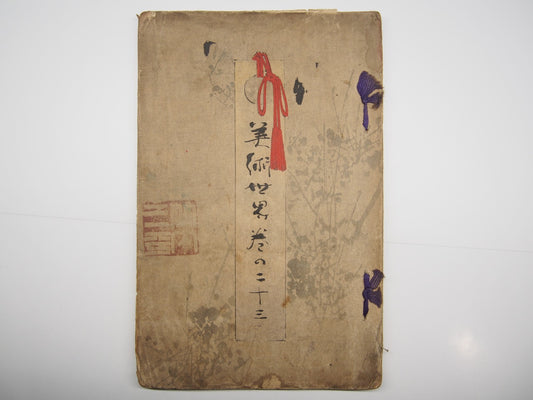 美術世界巻の二十三